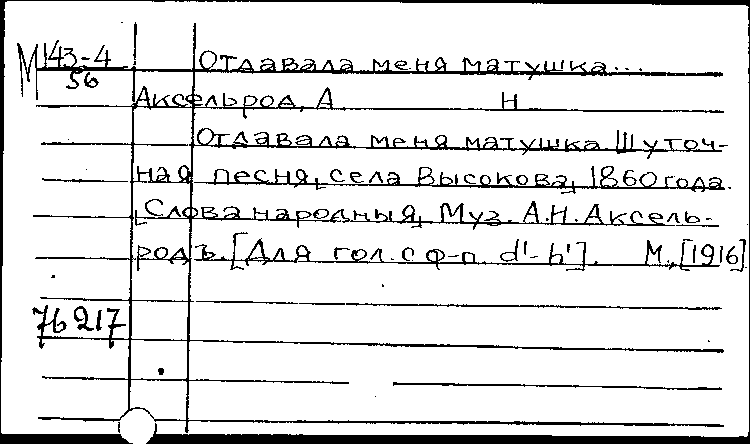 М 143-4 Отдавала меня матушка...
56
Аксельрод, А. Н
Отдавала меня матушка. Шуточ-
ная песня, села Высокова, 1860 года.
Слова народныя, Муз. А.Н. Аксель-
родъ. [Для гол. с ф-п. d'-h']. М., [1916]
76 217